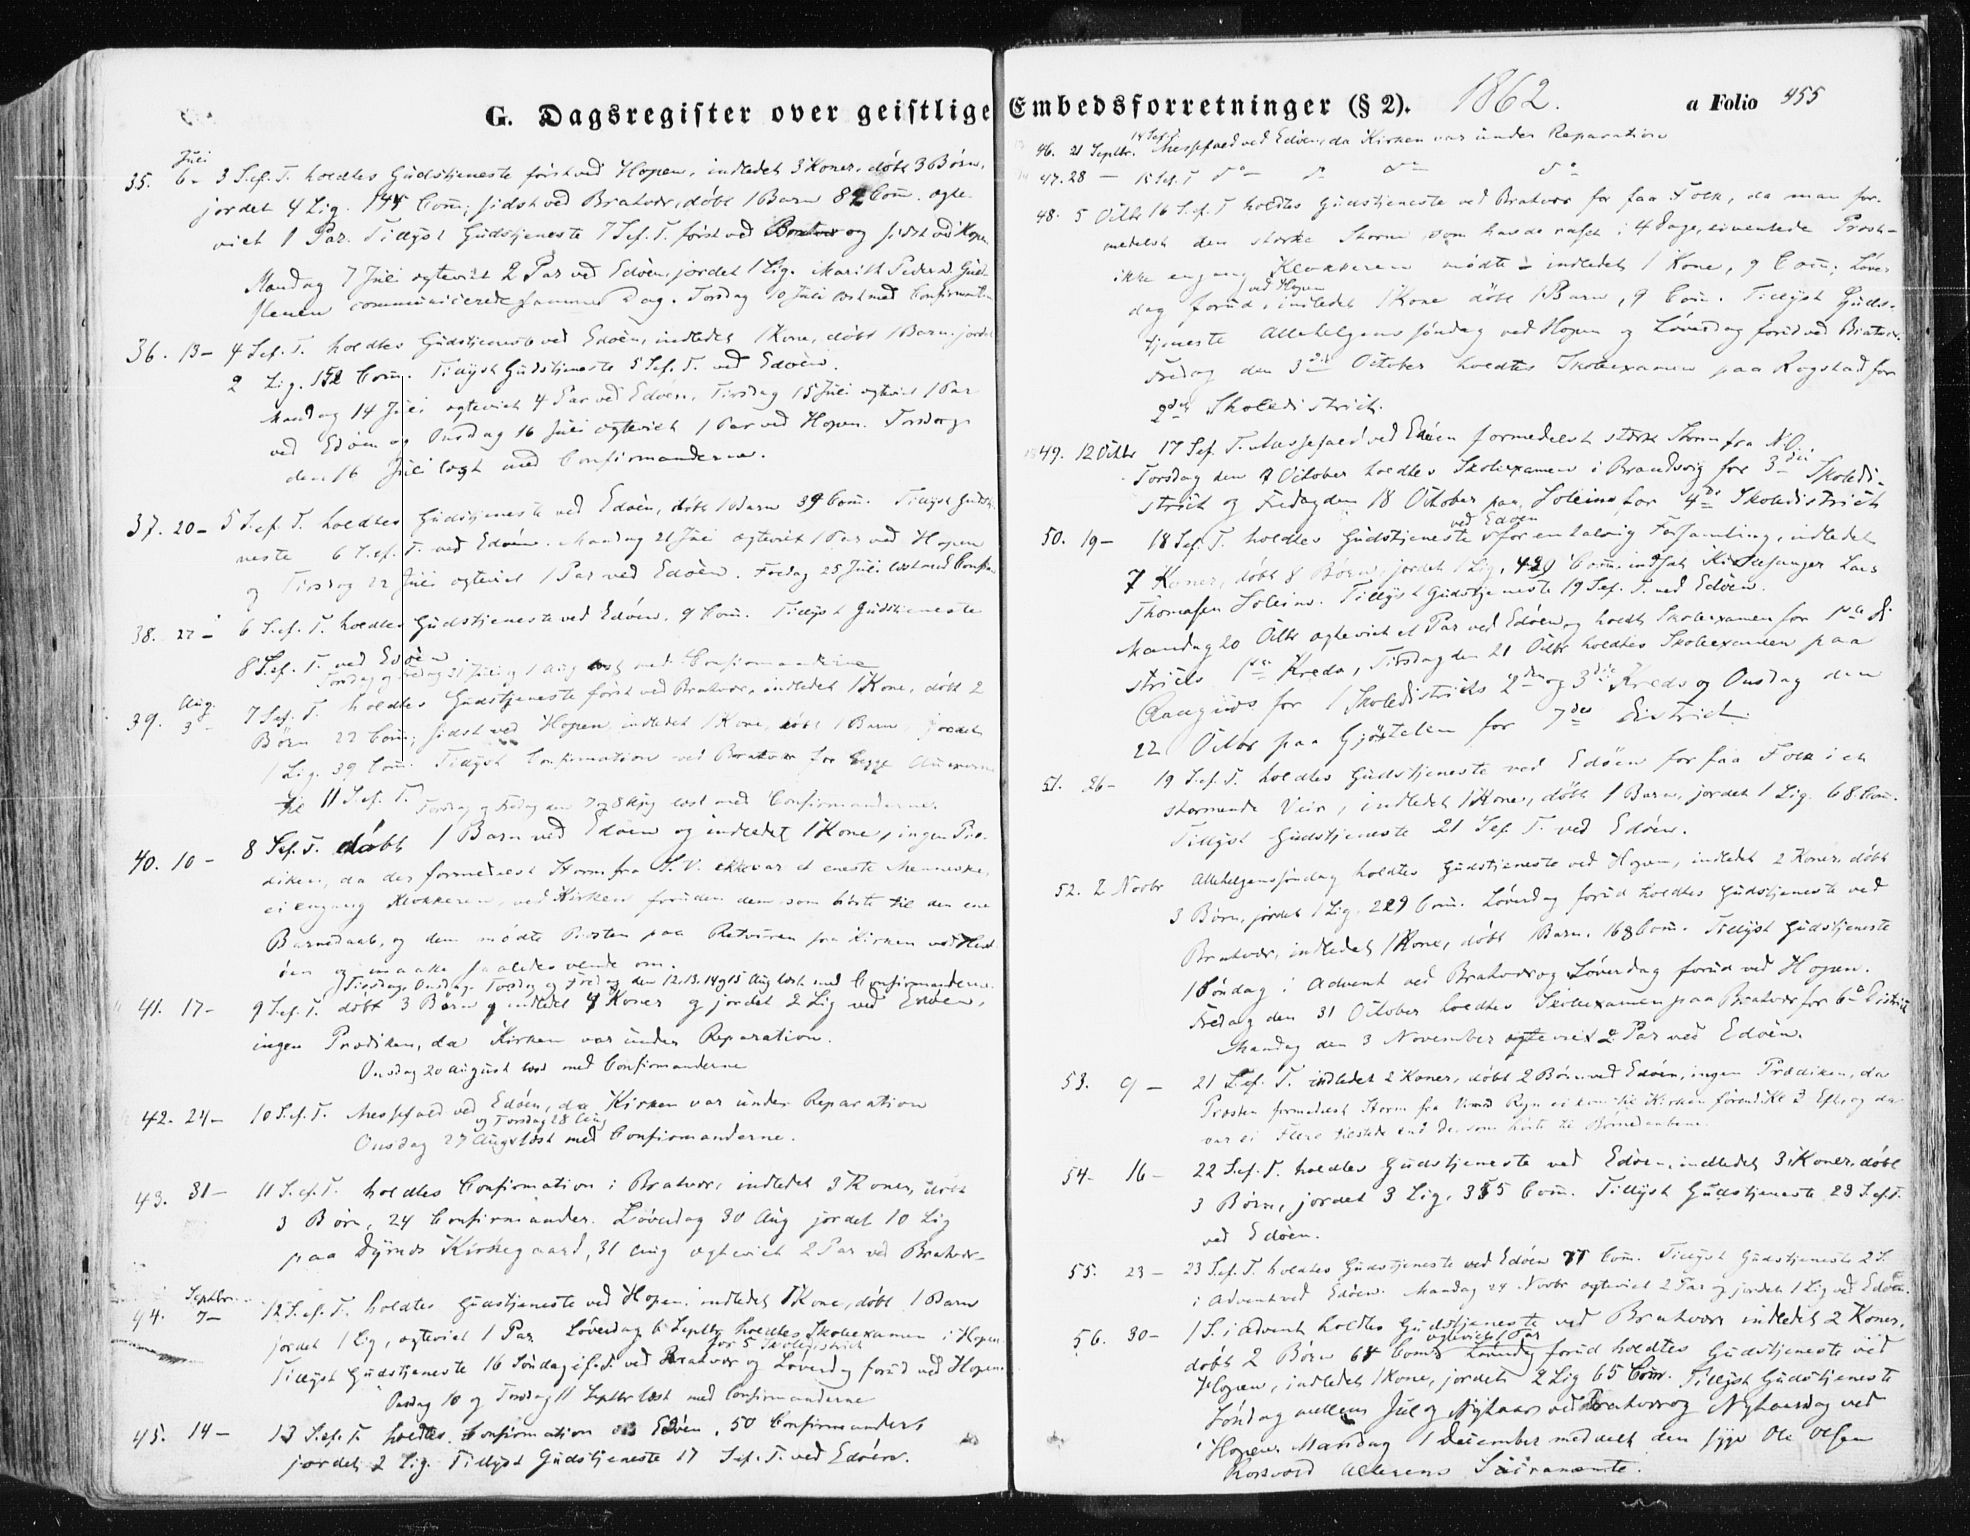 G. Dagsregister over geistlige Embedsforretninger (§ 2). 1862. a Folio 455
Juli
35. 6 - 3 S. ef. T. holdtes Gudstjeneste først ved Hopen, indledet 3 Koner, døbt 3 Børn,
jordet 4 Lig. 144 Com; sidst ved Bratvær, døbt 1 Barn 82 Com. ægte-
viet 1 Par. Tillyst Gudstjeneste 7 S. ef. T. først ved Bratvær og sidst ved Hopen
Mandag 7 Juli ægteviet 2 Par ved Edøen, jordet 1 Lig. Marith Pedersd.
communicerede samme Dag. Torsdag 10 Juli læst med Confirmanterne
36. 13 - 4 S. ef. T. holdtes Gudstjeneste ved Edøen, indledet 1 Kone, døbt 1 Barn, jordet
2 Lig. 152 Com. Tillyst Gudstjeneste 5 S. ef. T. ved Edøen.
Mandag 14 Juli ægteviet 4 Par ved Edøen, Tirsdag 15 Juli ægteviet 1 Par
ved Edøen og Onsdag 16 Juli ægteviet 1 Par ved Hopen. Torsdag
den 16 Juli læst med Confirmanderne.
37. 20 - 5 S. ef. T. holdtes Gudstjeneste ved Edøen, døbt 1 Barn 39 Com. Tillyst Gudstje-
neste 6 S. ef. T. ved Edøen. Mandag 21 Juli ægteviet 1 Par ved Hopen
og Tirsdag 22 Juli ægteviet 1 Par ved Edøen. Fredag 25 Juli læst med Confirm
38. 27 - 6 S. ef. T. holdtes Gudstjeneste ved Edøen. 9 Com. Tillyst Gudstjeneste
8 S. ef. T. ved Edøen
Torsdag og Fredag 31 Juli og 1 Aug læst med Confirmanderne
Aug.
39. 3 - 7 S. ef. T. holdtes Gudstjeneste først ved Bratvær, indledet 1 Kone, døbt 2
Børn 22 Com; sidst ved Hopen, indledet 1 Kone, døbt 1 Barn, jordet
1 Lig. 39 Com. Tillyst Confirmation ved Bratvær for begge Annexerne
til 11 S. ef. T. Torsdag og Fredag den 7 og 8 Aug læst med Confirmanderne.
40. 10 - 8 S. ef. T. døbt 1 Barn ved Edøen og indledet 1 Kone, ingen Præ-
diken, da der formedelst Storm fra S. V. ikke var et eneste Menneske,
ei engang Klokkeren, ved Kirken foruden dem som hørte til den ene
Barnedaab, og dem mødte Præsten paa Returen fra Kirken ved
øen og maatte saaledes vende om.
Tirsdag, Onsdag, Torsdag og Fredag den 12. 13. 14 og 15 Aug læst med Confirmanderne.
41. 17 - 9 S. ef. T. døbt 3 Børn og indledet 4 Koner og jordet 2 Lig ved Edøen,
ingen Prædiken, da Kirken var under Reparation.
Onsdag 20 August læst med Confirmanderne
42. 24 - 10 S. ef. T. Messefald ved Edøen, da Kirken var under Reparation
og Torsdag 28 Aug
Onsdag 27 Aug læst med Confirmanderne.
43. 31 - 11 S. ef. T. holdtes Confirmation i Bratvær, indledet 3 Koner, døbt
3 Børn, 24 Confirmander. Løverdag 30 Aug jordet 10 Lig
paa Dyrnæs Kirkegaard, 31 Aug ægteviet 2 Par ved Bratvær
Septbr.
44. 7 - 12 S. ef. T. holdtes Gudstjeneste ved Hopen, indledet 1 Kone, døbt 1 Barn
jordet 1 Lig, ægteviet 1 Par Løverdag 6 Septbr holdtes Skoleexamen i Hopen
for 5 Skoledistrict
Tillyst Gudstjeneste 16 Søndag ef. T. ved Bratvær og Løverdag forud ved Hopen.
Onsdag 10 og Torsdag 11 Septbr læst med Confirmanderne
45. 14 - 13 S. ef. T. holdtes Confirmation ved Edøen, 50 Confirmander
jordet 2 Lig. Tillyst Gudstjeneste 17 S. ef. T. ved Edøen.
14 S. ef. T.
46. 21 Septbr. Messefald ved Edøen, da Kirken var under Reparation
47. 28 - 15 S. ef. T do do do do
48. 5 Octbr 16 S. ef. T holdtes Gudstjeneste ved Bratvær for faa Folk, da man for-
medelst den stærke Storm som havde raset i 4 Dage, ei ventede Præst -
ikke engang Klokkeren mødte - indledet 1 Kone, 9 Com; Løver-
ved Hopen
dag forud, indledet 1 Kone døbt 1 Barn, 9 Com. Tillyst Guds-
tjeneste Allehelgens søndag ved Hopen og Løverdag forud ved Bratvær.
Fredag den 3die October holdtes Skoleexamen paa Rogstad for
2det Skoledistrict.
49. 12 Octbr 17 S. ef. T. Messefald ved Edøen formedelst stærk Storm fra N.O.
Torsdag den 9 October holdtes Skoleexamen i Brandsvig for 3die Skoledi-
strict og Fredag den 18 October paa Soleim for 4de Skoledistrict
ved Edøen
50. 19 - 18 S. ef. T. holdtes Gudstjeneste for en talrig Forsamling, indledet
7 Koner, døbt 8 Børn, jordet 1 Lig, 429 Com. indsat Kirkesanger Lars
Thomasen Soleim. Tillyst Gudstjeneste 19 S. ef. T. ved Edøen.
Mandag 20 Octbr ægteviet et Par ved Edøen og holdt Skoleexamen for 1ste Di
stricts 1ste Kreds, Tirsdag den 21 Octbr holdtes Skoleexamen paa
for 1 Skoledistricts 2den og 3die Kreds og Onsdag den
22 Octbr paa Gjøstelen for 7de District
51. 26 - 19 S. ef. T. holdtes Gudstjeneste ved Edøen for faa Folk i et
stormende Veir, indledet 1 Kone, døbt 1 Barn, jordet 1 Lig. 68 Com.
Tillyst Gudstjeneste 21 S. ef. T. ved Edøen.
52. 2 Novbr Allehelgenssøndag holdtes Gudstjeneste ved Hopen, indledet 2 Koner, døbt
3 Børn, jordet 1 Lig. 229 Com. Løverdag forud holdtes Gudstjeneste ved
Bratvær, indledet 1 Kone, døbt 1 Barn, 168 Com. Tillyst Gudstjeneste
1 Søndag i Advent ved Bratvær og Løverdag forud ved Hopen.
Fredag den 31 October holdtes Skoleexamen paa Bratvær for 6te District
Mandag den 3 November ægteviet 2 Par ved Edøen.
53. 9 - 21 S. ef. T. indledet 2 Koner, døbt 2 Børn ved Edøen, ingen Prædiken, da
Præsten formedelst Storm fra ei kom til Kirken førend Kl 2 Eft, og da
var ei Flere tilstede end de som hørte til Børnedaabene.
54. 16 - 22 S. ef. T. holdtes Gudstjeneste ved Edøen, indledet 3 Koner, døbt
3 Børn, jordet 3 Lig, 355 Com. Tillyst Gudstjeneste 23 S. ef. T.
ved Edøen.
55. 23 - 23 S. ef. T. holdtes Gudstjeneste ved Edøen 77 Com. Tillyst Gudstjeneste 2 S.
i Advent ved Edøen. Mandag 24 Novbr ægteviet 2 Par og jordet 1 Lig ved Edøen.
56. 30 - 1 S. i Advent holdtes Gudstjeneste ved Bratvær indledet 2 Koner,
ægteviet 1 Par
døbt 2 Børn 68 Com. Løverdag forud holdtes Gudstjeneste ved
Hopen, indledet 1 Kone, jordet 2 Lig 65 Com. Tillyst Gudstjeneste
Søndag mellem Jul og Nytaar ved Bratvær og Nytaarsdag ved
Hopen. Mandag 1 December meddelt den syge Ole Olsen
Korsvold Alterens Sacramente.